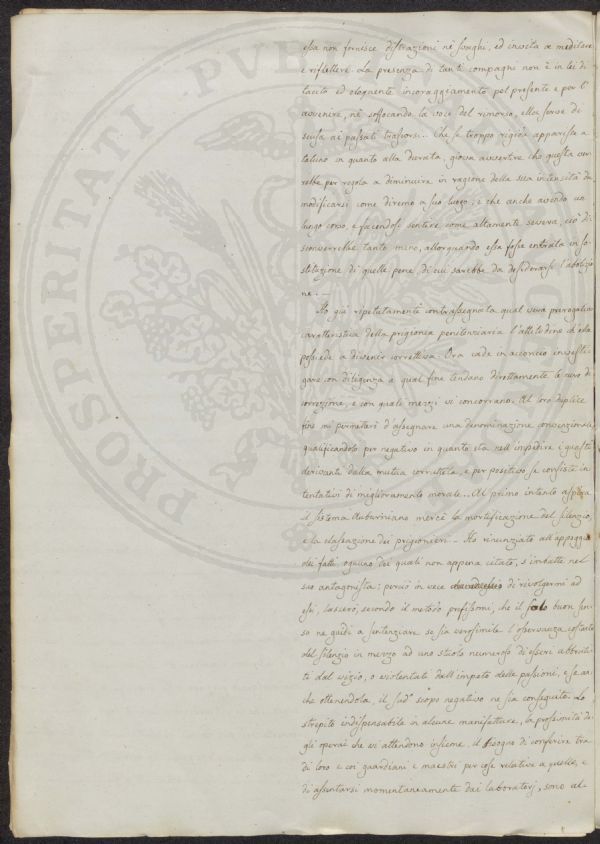 essa non fornisce distrazioni nè svaghi, ed invita a meditare
e riflettere. La presenza di tanti compagni non è in lei di
tacito ed eloquente incoraggiamento pel presente e per l'
avvenire, nè soffocando la voce del rimorso, ella serve di
scusa ai passati trascorsi. Che se troppo rigida apparisse a
taluno in quanto alla durata, giova avvertire che questa ver
rebbe per regola a diminuire in ragione della sua intensità da
modificarsi come diremo a suo luogo; e che anche avendo un
lungo corso, e facendosi sentire come altamente severa, ciò di
sconverrebbe tanto meno, allorquando essa fosse entrata in so
stituzione di quelle pene, di cui sarebbe da desiderarsi l'abolizio
ne. —
Ho già ripetutamente contrassegnata qual vera prerogativa
caratteristica della prigionia penitenziaria l'attitudine ch'essa
possiede a divenir correttiva. Ora cade in acconcio investi
gare con diligenza a qual fine tendano direttamente le cure di
correzione, e con quali mezzi vi concorrano. Al loro duplice
fine mi permetterò d'assegnare una denominazione convenzionale,
qualificandolo per negativo in quanto sta nell'impedire i guasti
derivanti dalla mutua corruttela, e per positivo se consiste in
tentativi di miglioramento morale. Al primo intento aspira
il sistema Auburniano mercè la mortificazione del silenzio,
e la classazione dei prigionieri. — Ho rinunziato all'appoggio
dei fatti, ognuno dei quali non appena citato, s'imbatte nel
suo antagonista; perciò in vece di rivolgermi ad
essi, lascerò, secondo il metodo prefissomi, che il solo buon sen
so ne guidi a sentenziare se sia verosimile l'osservanza costante
del silenzio in mezzo ad uno stuolo numeroso di esseri abbruti
ti dal vizio, o violentati dall'impeto delle passioni, e se an
che ottenendola, il sudº scopo negativo ne sia conseguito. Lo
strepito indispensabile in alcune manifatture, la prossimità de
gli operai che vi attendono insieme, il bisogno di conferire tra
di loro e coi guardiani e maestri per cose relative a quelle, e
di assentarsi momentaneamente dai laboratorj, sono al-
PROSPERITATI PUB